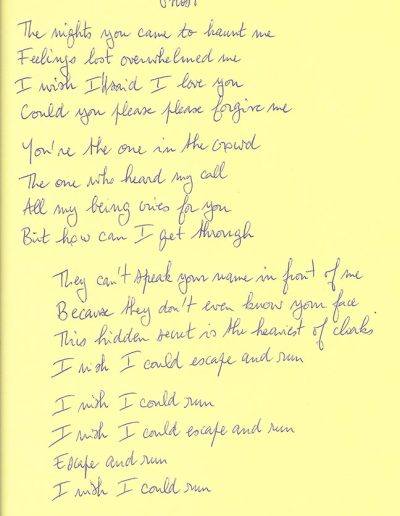 The nights you came to haunt me
Feelings lost overwhelmed me
I wish I'd said I love you
Could you please please forgive me
You're the one in the crowd
The one who heard my call
All my being cries for you
But how can I get through
They can't speak your name in front of me
Because they don't even know your face
This hidden secret is the heaviest of cloaks
I wish I could escape and run
I wish I could run
I wish I could escape and run
Escape and run
I wish I could run